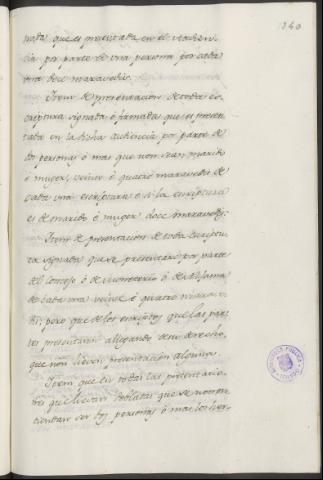 140
nada que es presentada en el Audien-
cia por parte de una persona por cada
una doce maravedis.
Item de presentacion de toda es-
criptura signada ó firmada que es presen-
tada en la dicha audiencia por parte de
dos personas ó mas que non sean marido
ó muger, veinte é quatro maravedis de
cada una escriptura é si la escriptura
es de marido é muger doce maravedis.
Item de presentacion de toda Escriptu-
ra signada que se presentare por parte
de Concejo ó de Monesterio ó de Aljama
de cada una veinte é quatro marave-
dis; pero que de los escriptos que las par-
tes presentaren allegando de su derecho,
que non lleven presentacion alguna.
Item que en todas las presentacio-
nes que llevan dobladas que se non en-
tiendan ser dos personas ó mas los her-
BIBLIOTECA PUBLICA
TOLEDO